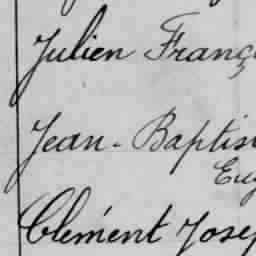 Julien Franç
Jean-Baptis
Eug
Clément Josep